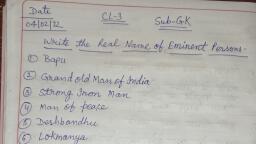 Date
04/02/22 CL-3 Sub-G.K
Write the Real Name of Eminent Persons-
① Bapu
② Grand old Man of India
③ Strong Iron Man
④ Man of peace
⑤ Deshbandhu
⑥ Lokmanya